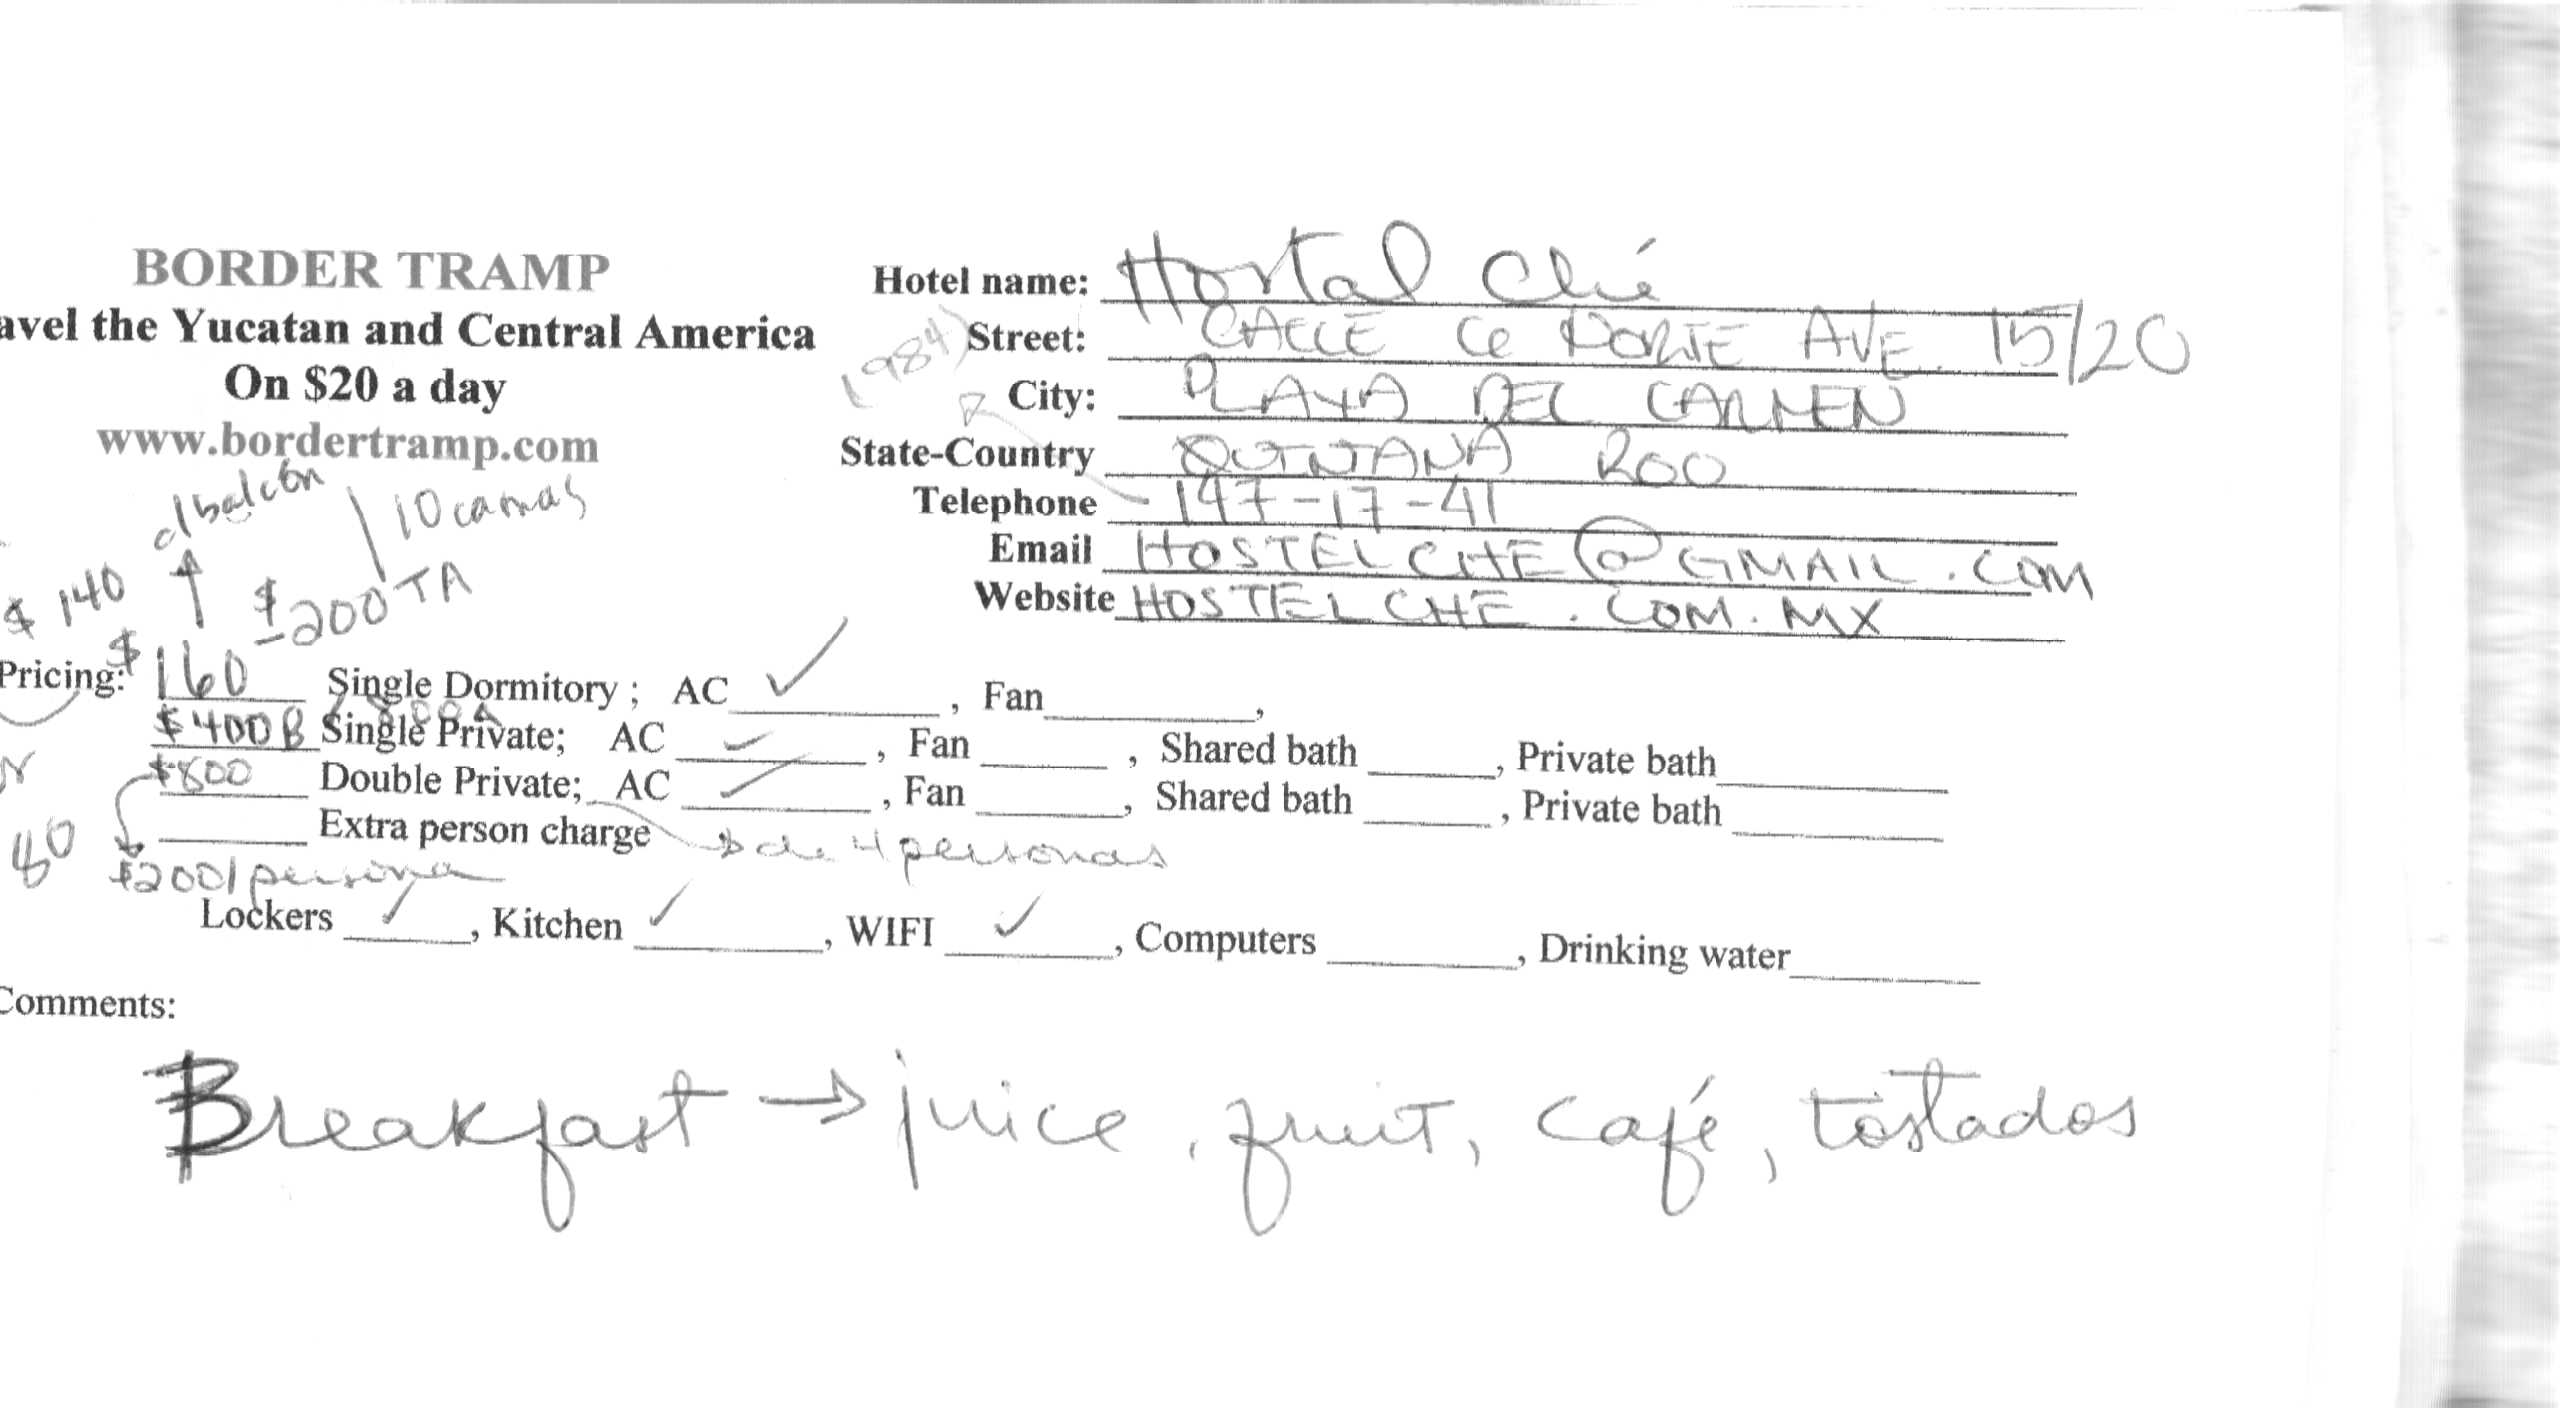 BORDER TRAMP
avel the Yucatan and Central America
On $20 a day
www.bordertramp.com
Hotel name: Hostal Ché
Street: CALLE 6 NORTE AVE. 15/20
(984)
City: PLAYA DEL CARMEN
State-Country QUINTANA ROO
Telephone 147-17-41
Email HOSTELCHE@GMAIL.COM
Website HOSTELCHE.COM.MX
c/balcón
10 camas
$140
$200 TA
Pricing: $160 Single Dormitory; AC ✓, Fan,
$400 B Single Private; AC ✓, Fan, Shared bath, Private bath
$800 Double Private; AC ✓, Fan, Shared bath, Private bath
Extra person charge
de 4 personas
$200/persona
Lockers ✓, Kitchen ✓, WIFI ✓, Computers, Drinking water
Comments:
Breakfast → juice, fruit, café, tostados